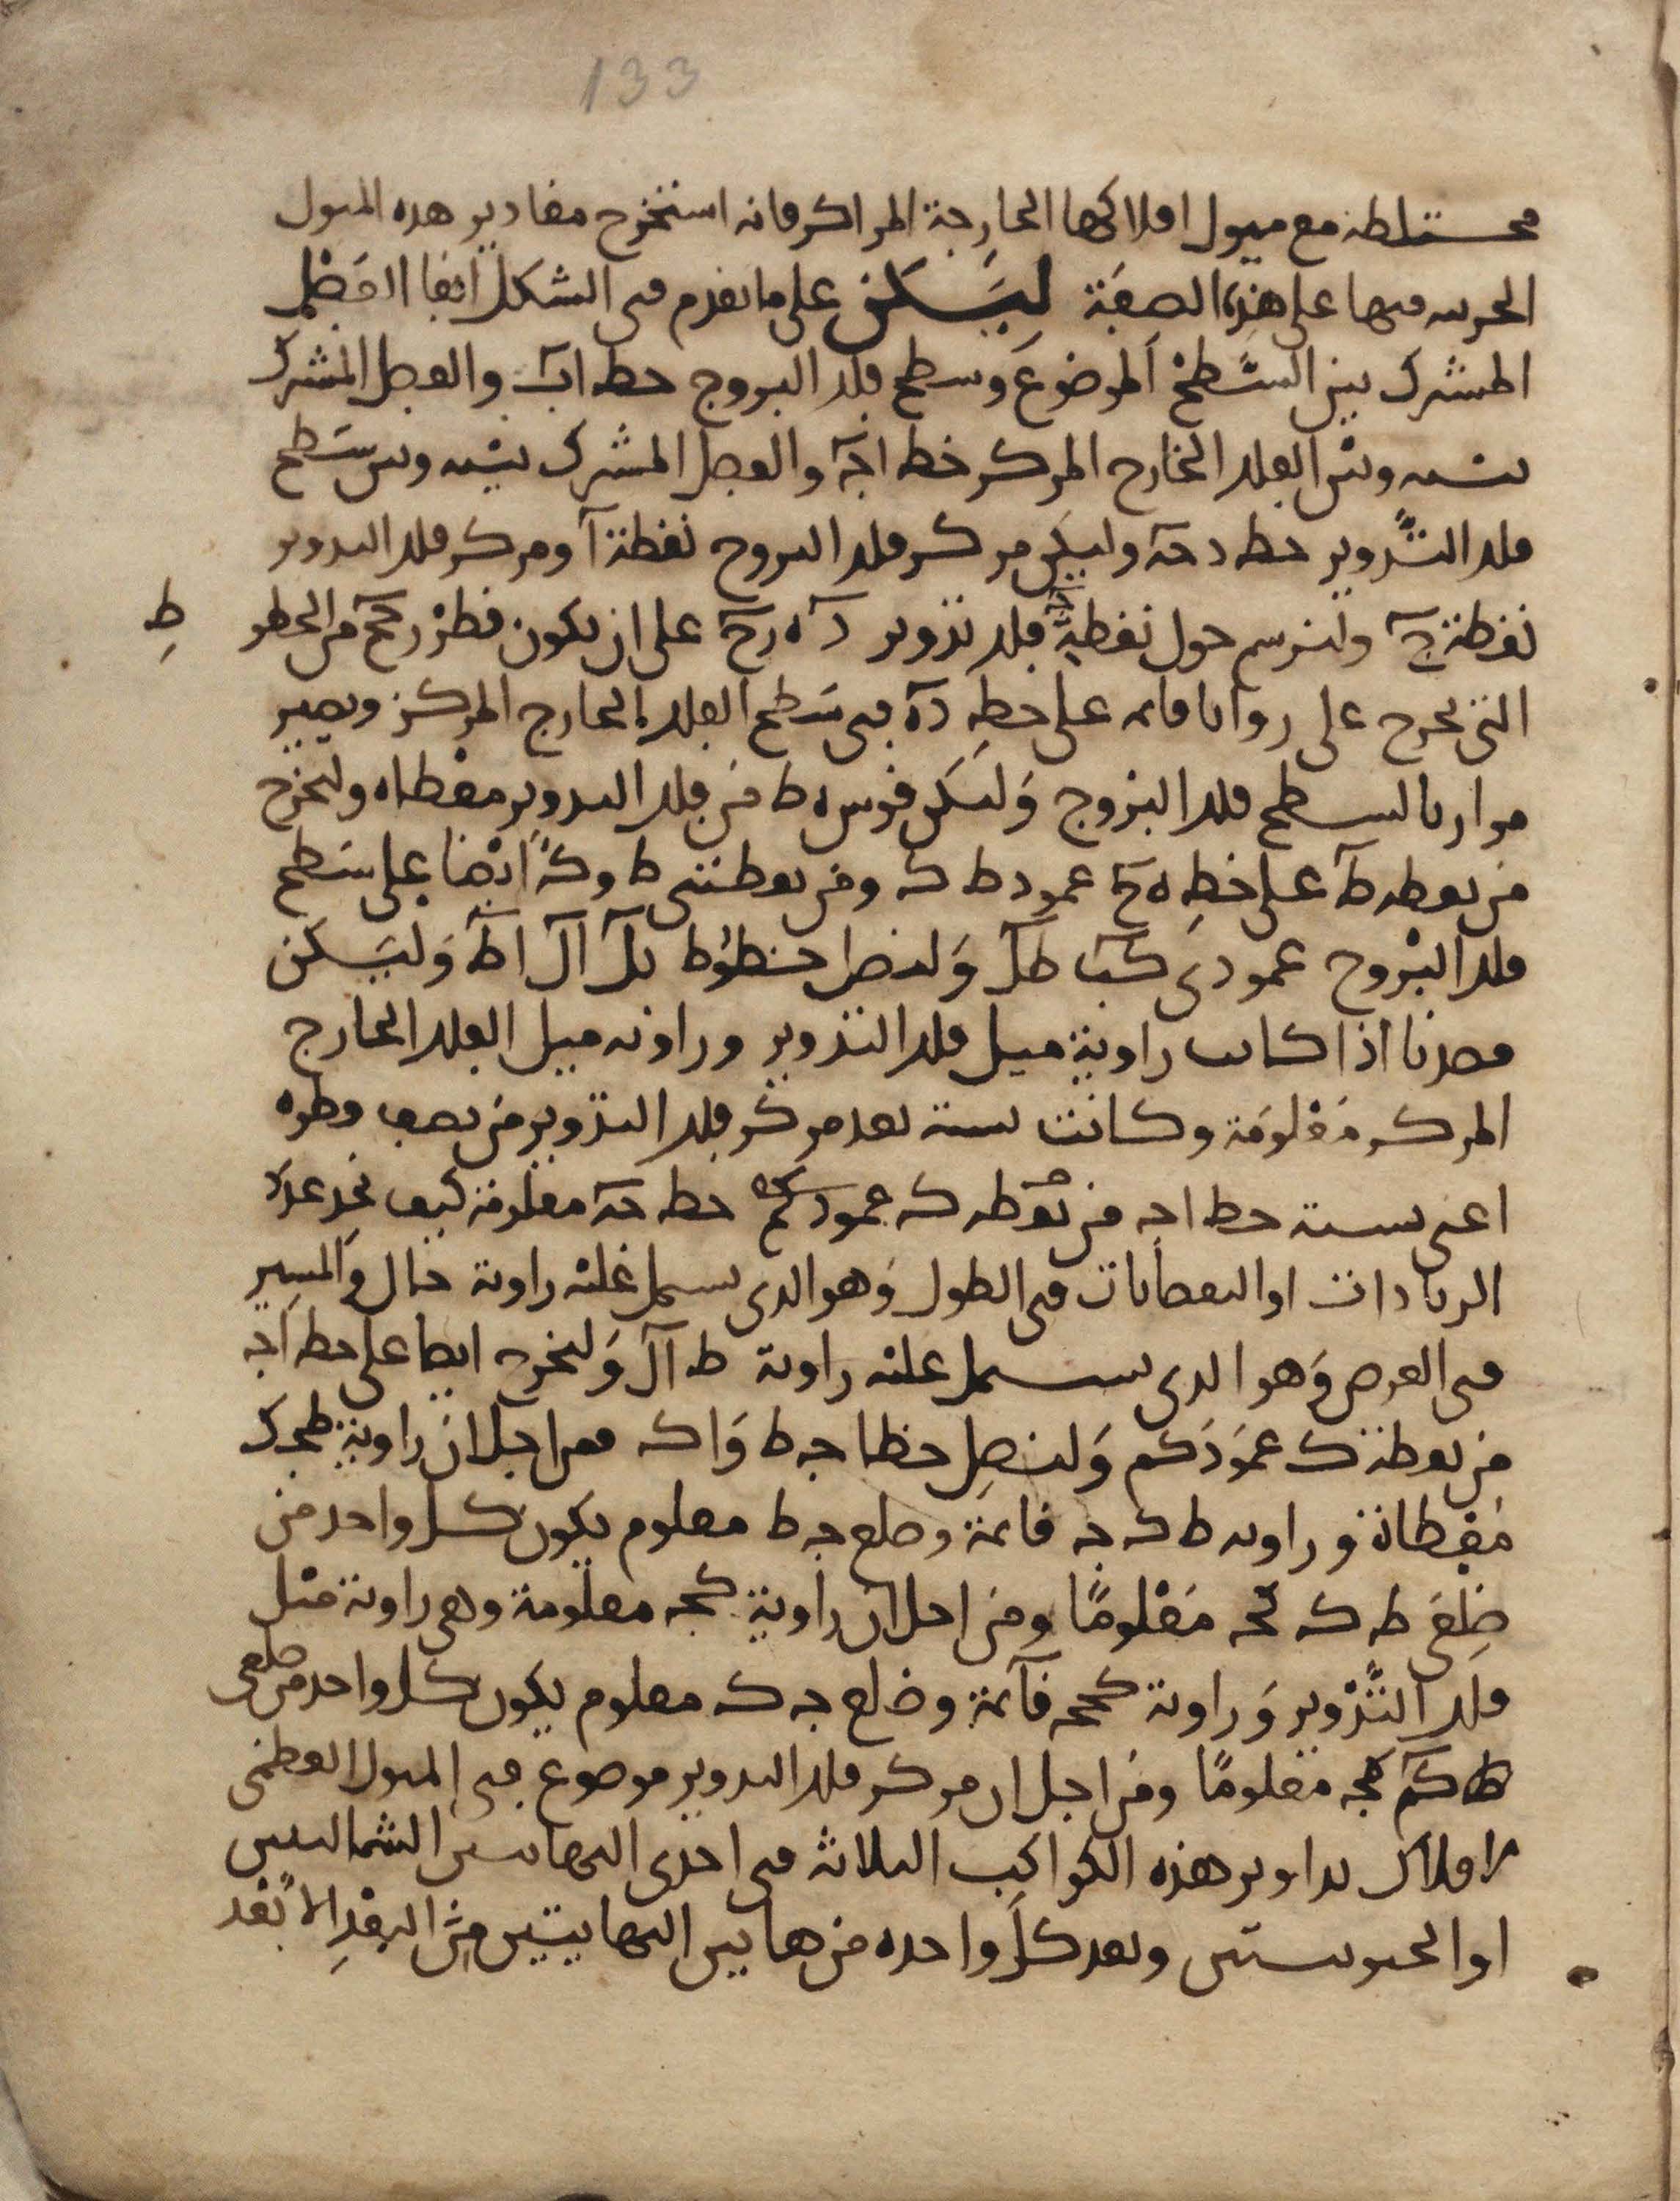 133
مختلطة مع ميول افلاكها الخارجة المراكز فانه استخرج مقادير هذه الميول
الجزيية فيها على هذه الصفة ليكن على ما تقدم في الشكل انفا الفصل
المشترك بين السطح الموضوع وسطح فلك البروج خط اب والفصل المشترك
بينه وبين الفلك الخارج المركز خط اج والفصل المشترك بينه وبين سطح
فلك التدوير خط دجه وليكن مركز فلك البروج نقطة ا ومركز فلك التدوير
نقطة ج ولنرسم حول نقطة ج فلك تدوير د ه ز ح على ان يكون قطر زجح من الخطوط
ط
التي تخرج على زوايا قايمة على خط ده في سطح الفلك الخارج المركز ويصير
موازيا لسطح فلك البروج وليكن قوس ه ط من فلك التدوير معطاه ولنخرج
من نقطة ط على خط ه ج عمود ط ك ومن نقطتي ط وك ايضا على سطح
فلك البروج عمودي كب طل ولنصل خطوط بل ال اط وليكن
قصدنا اذا كانت زاوية ميل فلك التدوير وزاوية ميل الفلك الخارج
المركز معلومة وكانت نسبة بعد مركز فلك التدوير من نصف قطره
اعني نسبة خط اج من نقطة ك عمود كم خط جه معلومة كيف نجد عدلا
الزيادات او النقصانات في الطول وهو الذي يشتمل عليه زاوية جال والمسير
في العرض وهو الذي يشتمل عليه زاوية ط ال ولنخرج ايضا على خط اج
من نقطة ك عمود كم ولنصل خطا جط واك فمن اجل ان زاوية طجك
معطاة وزاوية ط ك ج قايمة وضلع جط معلوم يكون كل واحد من
ضلعي ط ك كج معلوما ومن اجل ان زاوية كجم معلومة وهي زاوية ميل
فلك التدوير وزاوية كمج قايمة وضلع جك معلوم يكون كل واحد من ضلعي
كم مج معلوما ومن اجل ان مركز فلك التدوير موضوع في الميول العظمى
لافلاك تداوير هذه الكواكب الثلاثة في احدى النهايتين الشماليتين
او الجنوبيتين وبعد كل واحده من هاتين النهايتين من البعد الابعد